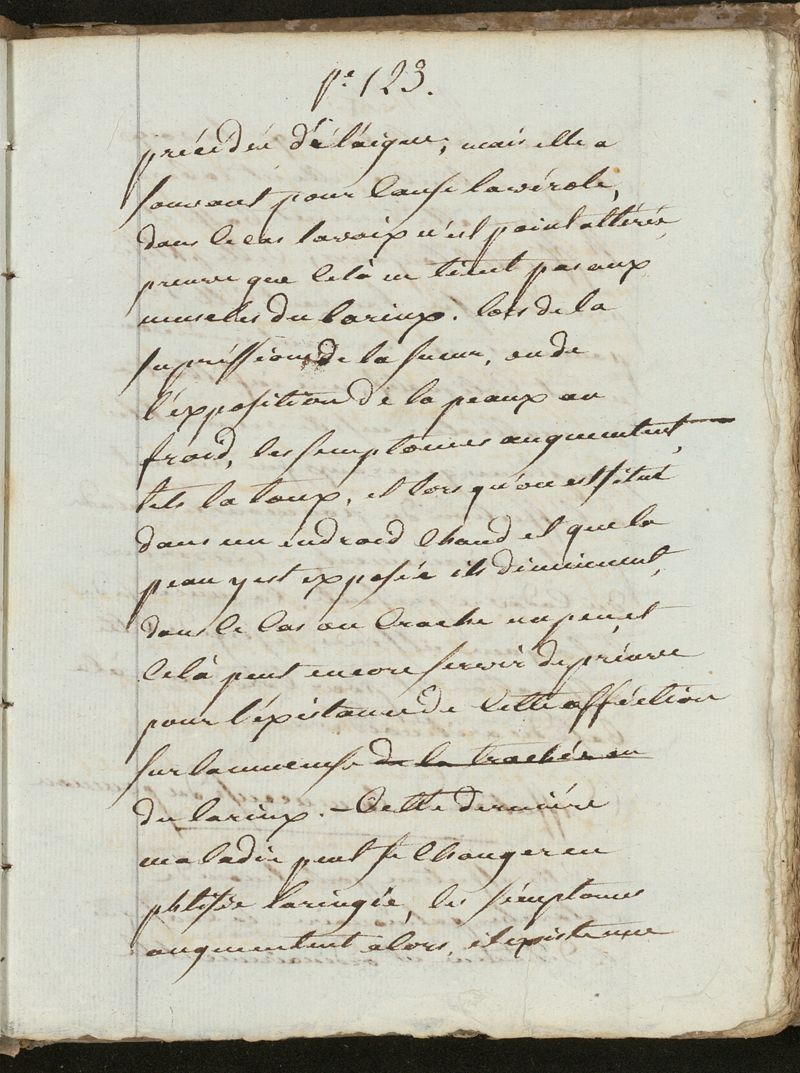 pe 123.
précédée d'élaigue; mais elle a
souvent pour cause la vérole,
dans ce cas la voix n'est point altérée,
preuve que celà ne tient pas aux
muscles du larinx. lors de la
supréssion de la sueur, ou de
l'exposition de la peaux au
froid, les simptomes augmentent,
tels la toux, et lors qu'on est situé
dans un endroid chaud et que la
peau y est exposée ils diminuent,
dans ce cas on crache un peu et
celà peut encore servir de préuve
pour l'éxistance de cette afféction
sur la muceuse de la trachée ou
du larinx. – Cette derniére
maladie peut se changer en
phtisie laringée, les sémptomes
augmentent alors, il existe une